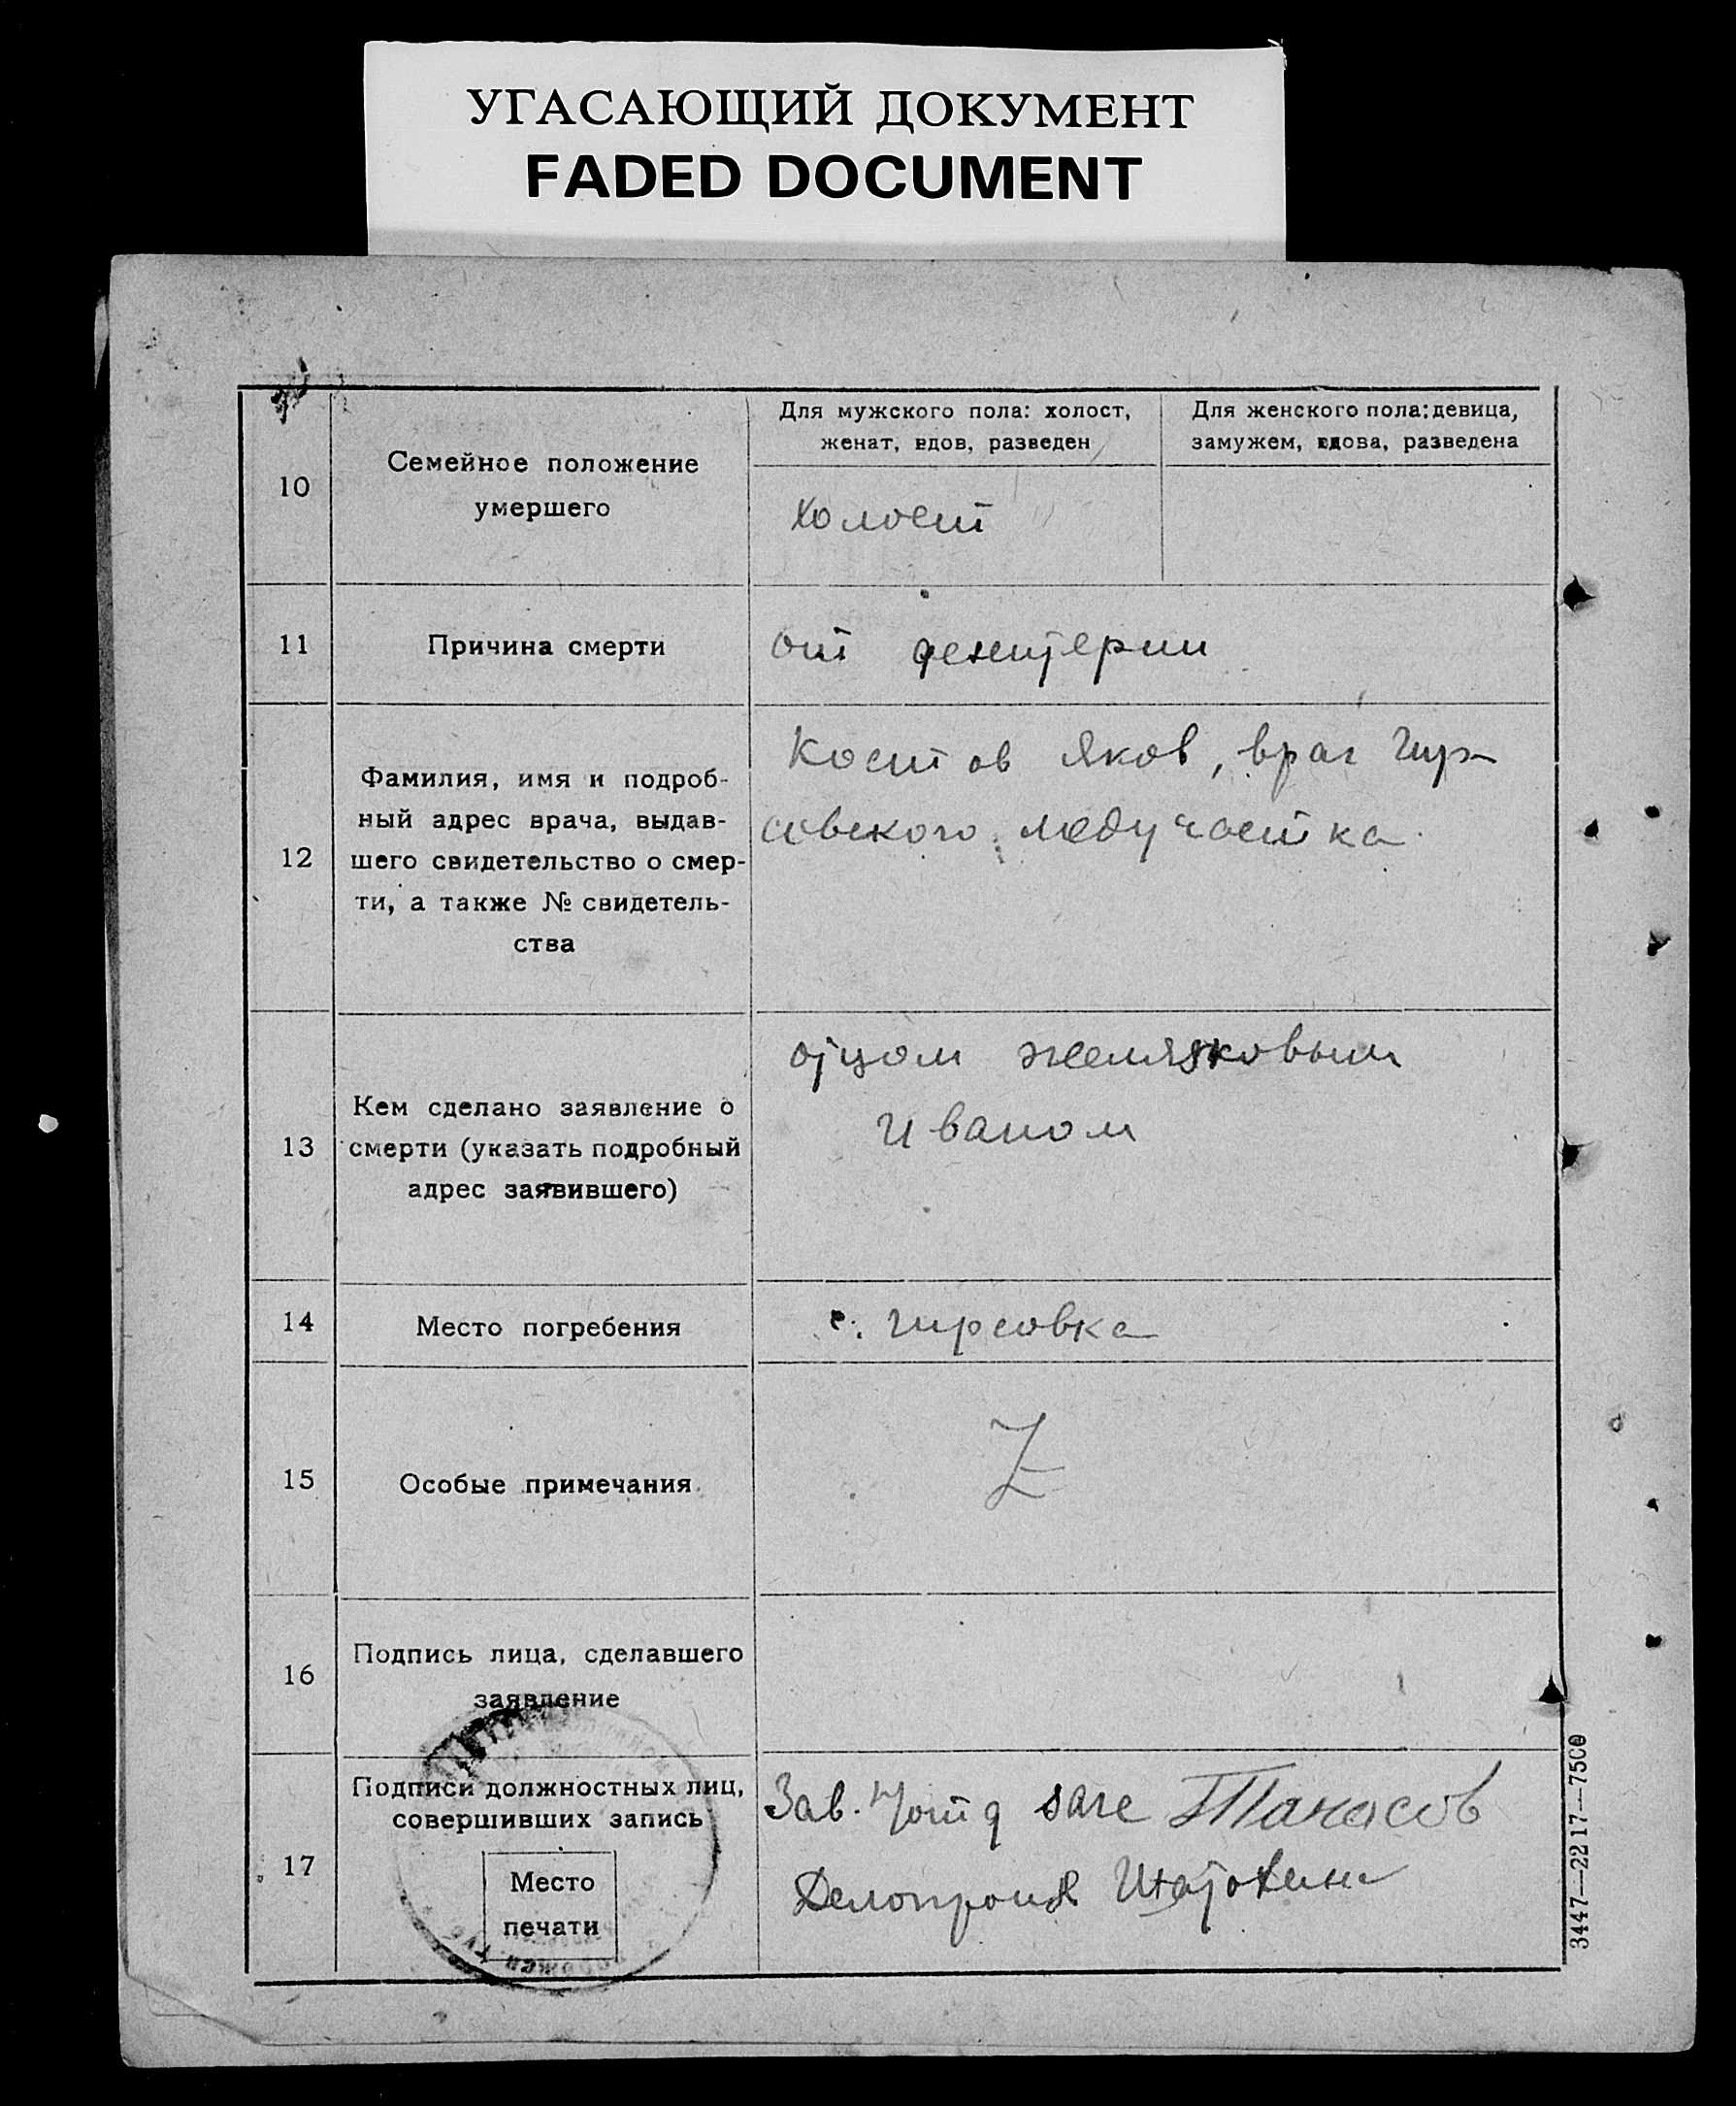 УГАСАЮЩИЙ ДОКУМЕНТ
FADED DOCUMENT
10
Семейное положение
умершего
Для мужского пола: холост,
женат, вдов, разведен
Для женского пола: девица,
замужем, вдова, разведена
холост
11
Причина смерти
от дезентерии
12
Фамилия, имя и подроб-
ный адрес врача, выдав-
шего свидетельство о смер-
ти, а также № свидетель-
ства
Костов Яков, врач Гир
совского медучастка
13
Кем сделано заявление о
смерти (указать подробный
адрес заявившего)
отцом Желязковым
Иваном
14
Место погребения
с. Гирсовка
15
Особые примечания
Z
16
Подпись лица, сделавшего
заявление
17
Подписи должностных лиц,
совершивших запись
Место
печати
Зав. загс Танасов
Делопроизв
3447—2217—7500